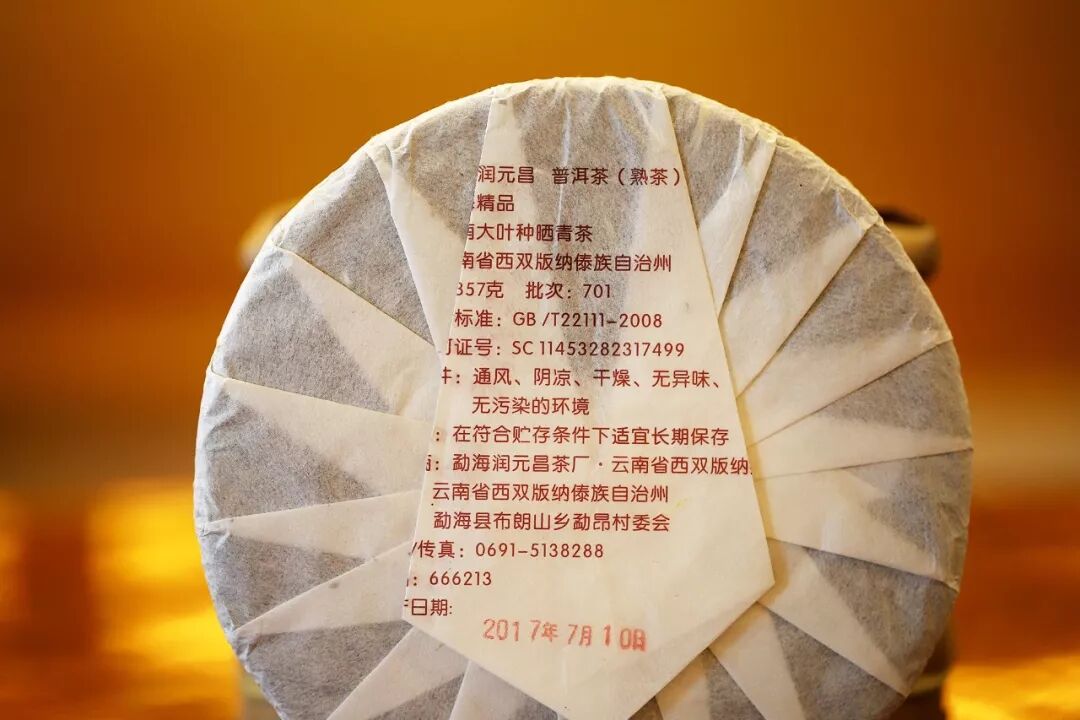 润元昌 普洱茶（熟茶）
精品
大叶种晒青茶
南省西双版纳傣族自治州
357克 批次：701
标准：GB/T22111-2008
证号：SC 11453282317499
件：通风、阴凉、干燥、无异味、
无污染的环境
：在符合贮存条件下适宜长期保存
：勐海润元昌茶厂·云南省西双版纳
云南省西双版纳傣族自治州
勐海县布朗山乡勐昂村委会
/传真：0691-5138288
：666213
日期：
2017年7月10日